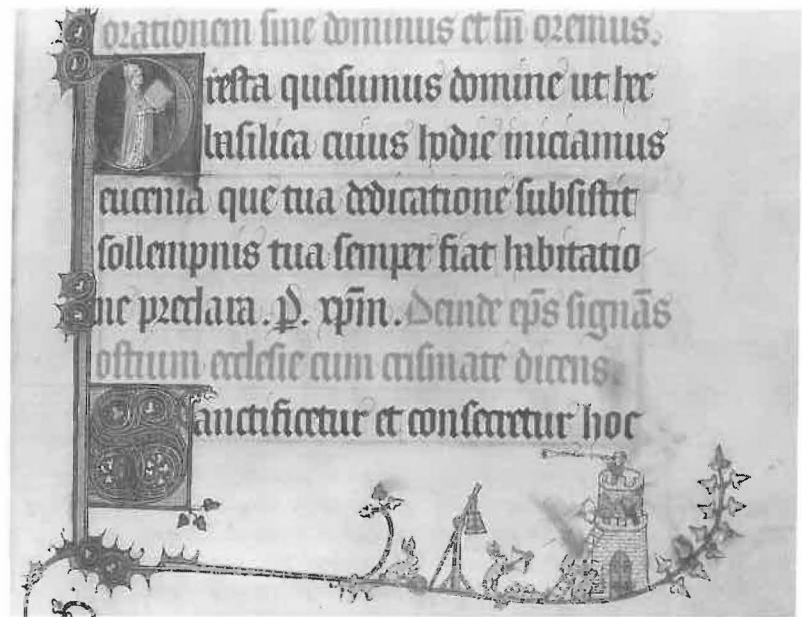 orationem sine dominus et sn̄ oremus.
Presta quesumus domine ut hec
basilica cuius hodie iniciamus
eucenia que tua dedicatione subsistit
sollempnis tua semper fiat habitatio
ne preclara. P̄. xp̄m. Deinde ep̄s signās
ostium ecclesie cum crismate dicens.
Sanctificetur et consecretur hoc